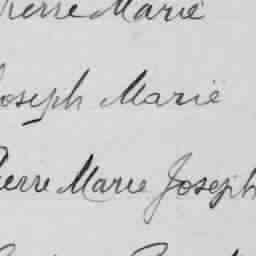 Pierre Marie
Joseph Marie
Pierre Marie Joseph